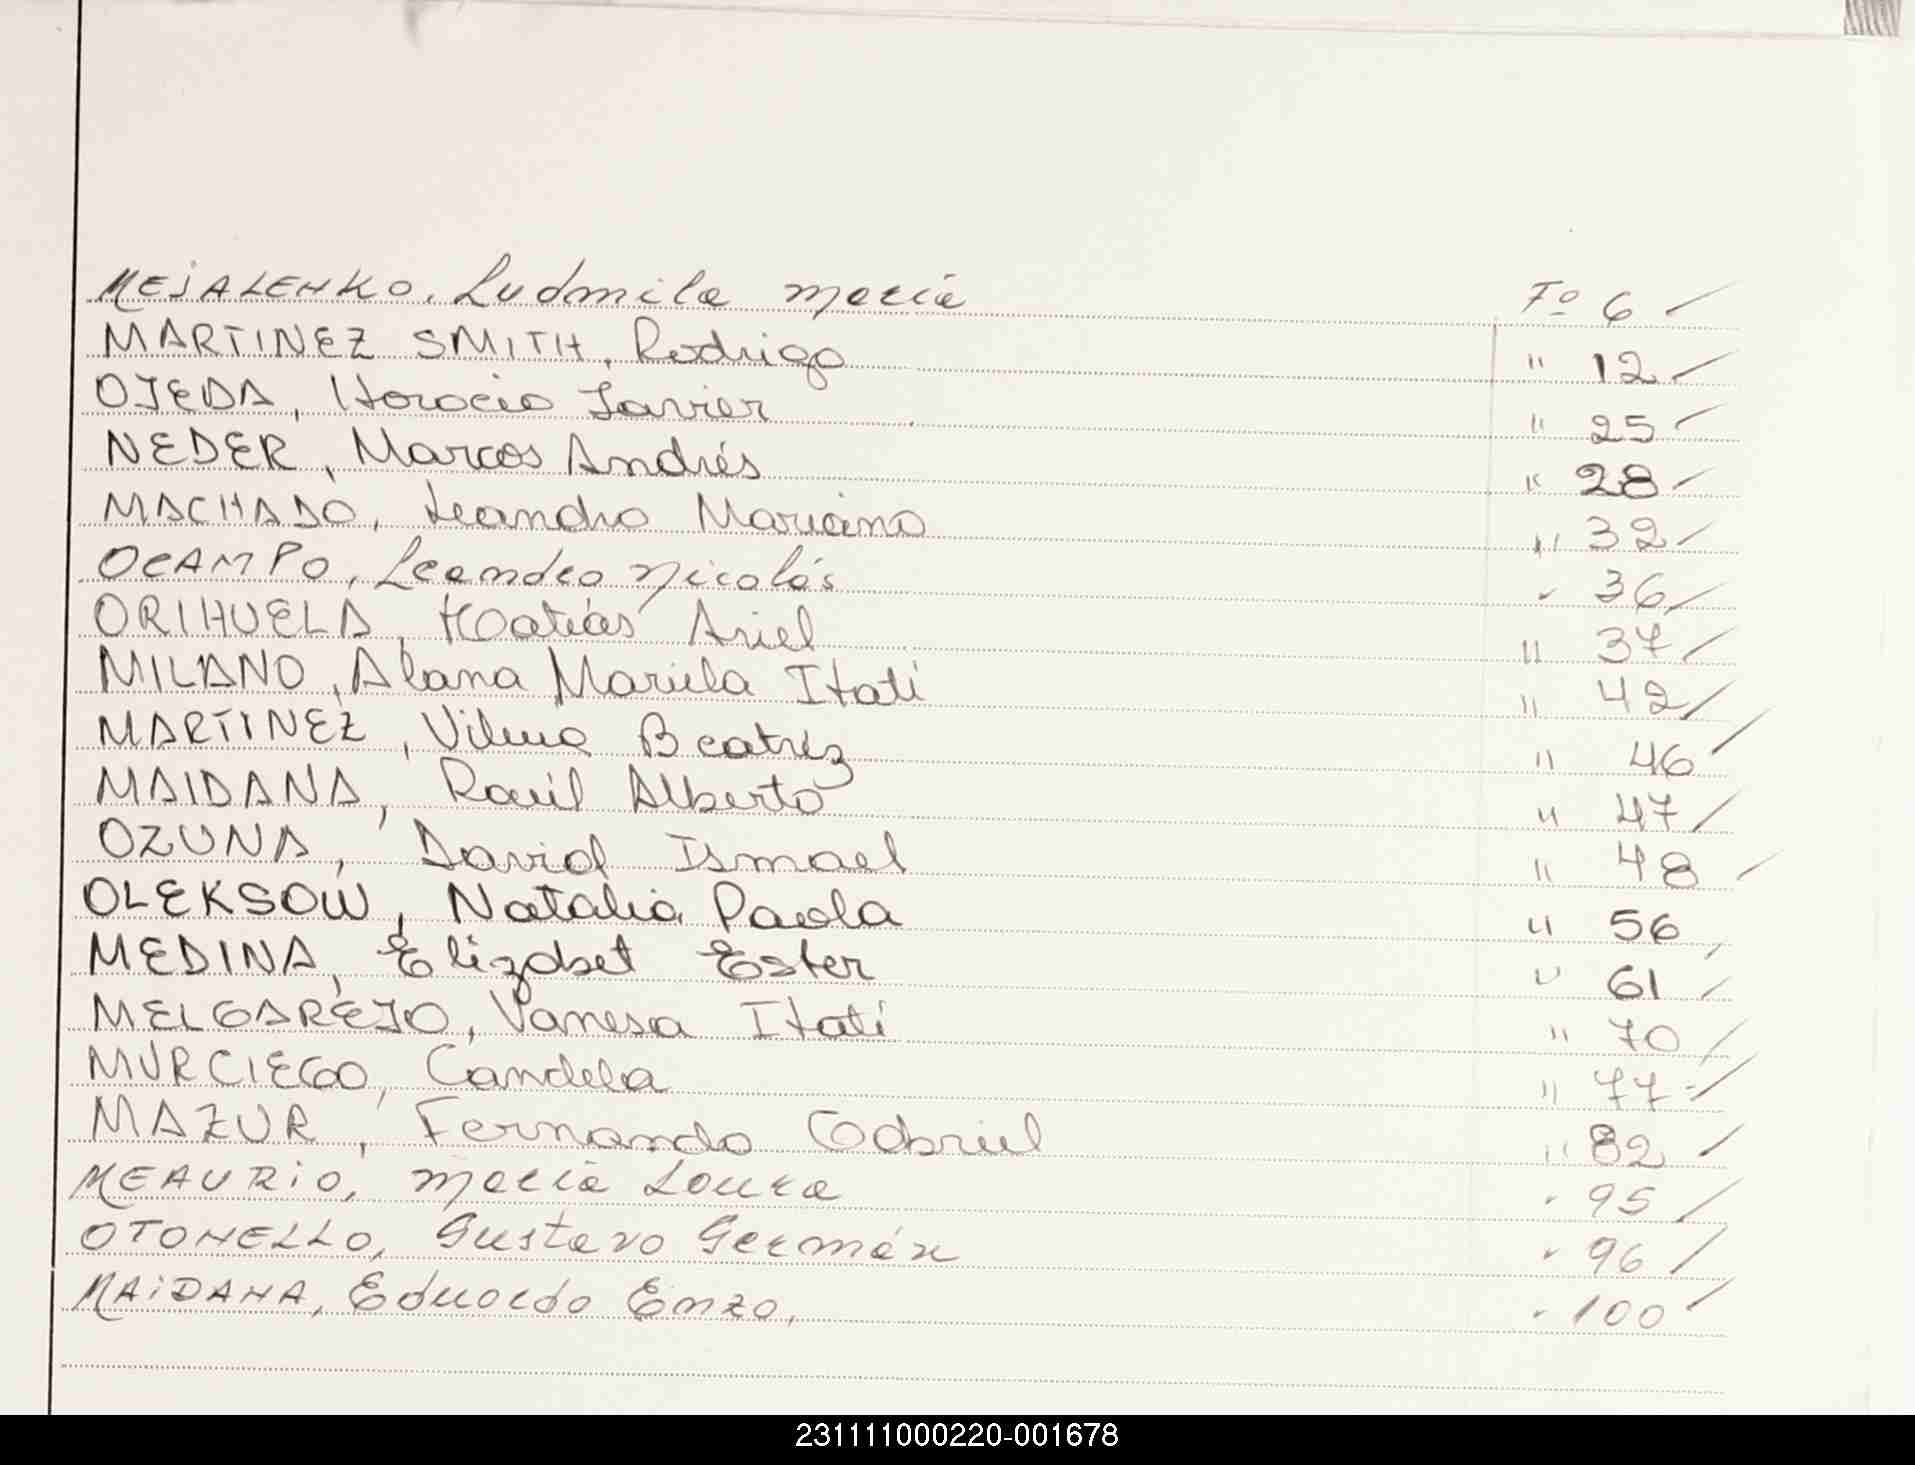 MEJALENKO, Ludmila María Fº 6
MARTINEZ SMITH, Rodrigo " 12
OJEDA, Horacio Javier " 25
NEDER, Marcos Andrés " 28
MACHADO, Leandro Mariano " 32
OCAMPO, Leandro Nicolás " 36
ORIHUELA, Matías Ariel " 37
MILANO, Alana Mariela Itatí " 42
MARTINEZ, Vilma Beatríz " 46
MAIDANA, Raúl Alberto " 47
OZUNA, David Ismael " 48
OLEKSOW, Natalia Paola " 56
MEDINA, Elizabet Ester " 61
MELGAREJO, Vanesa Itatí " 70
MURCIEGO, Candela " 77
MAZUR, Fernando Gabriel " 82
MEAURIO, María Laura " 95
OTONELLO, Gustavo Germán " 96
MAIDANA, Eduardo Enzo, " 100
231111000220-001678